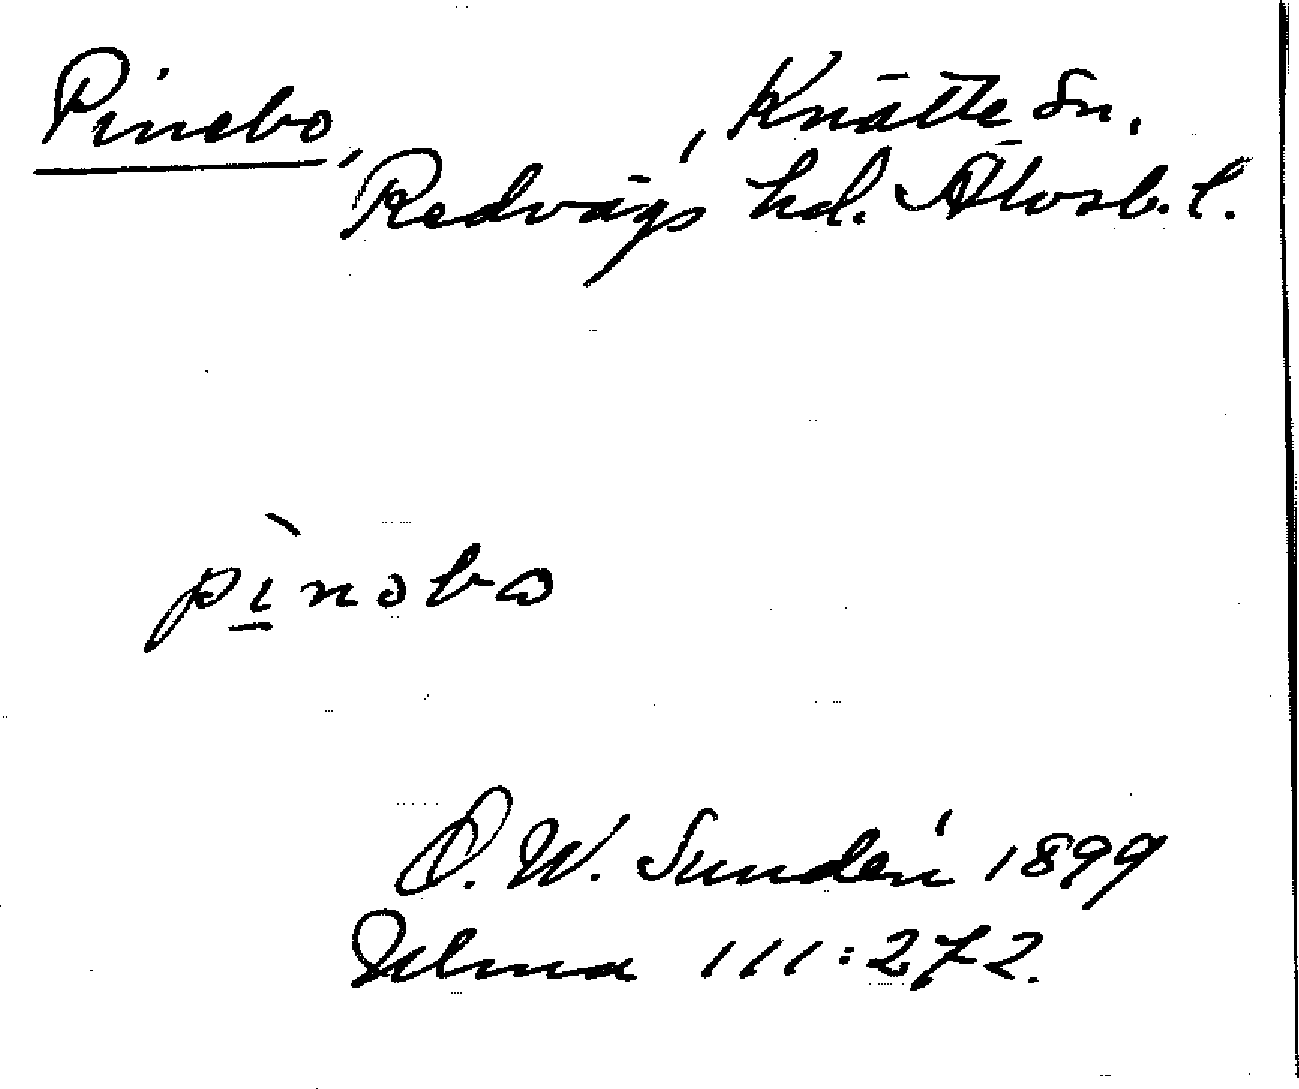 Pinebo, , Knätte sn,
Redvägs hd. Älvsb. l.
pìnəbo
D. W. Sundén 1899
Ulma 111:272.